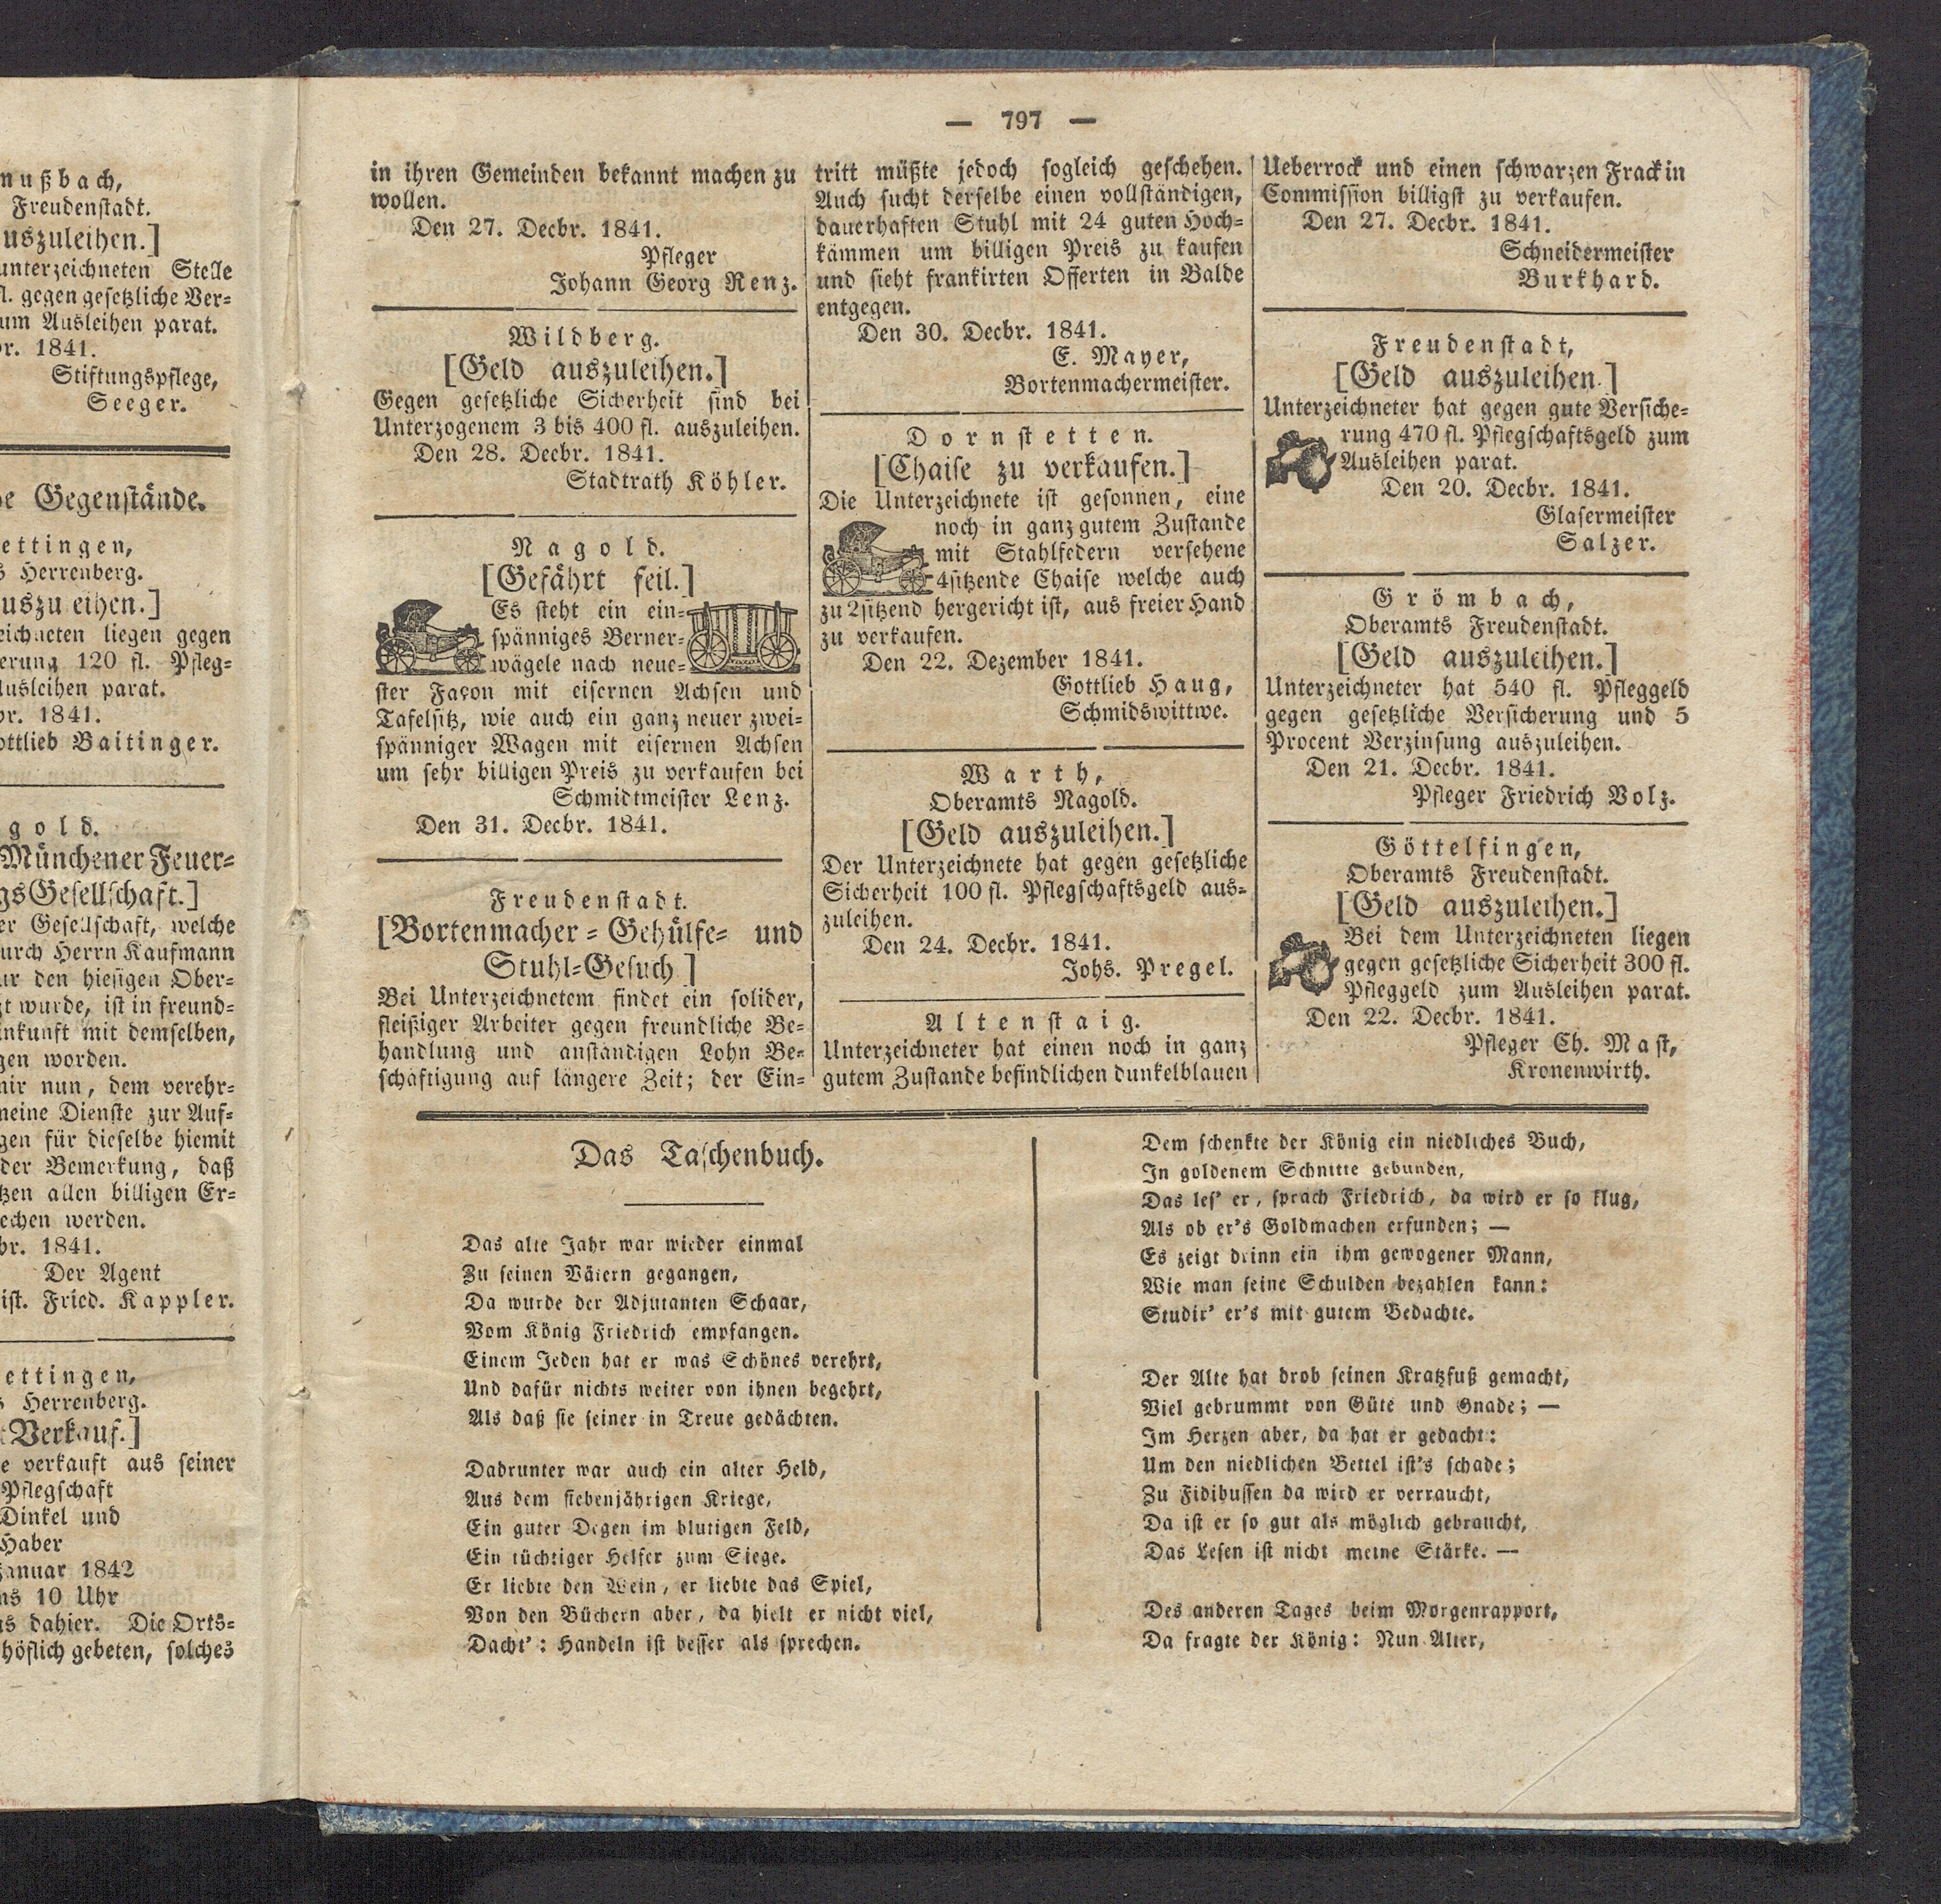 nußbach,
Freudenstadt.
uszuleihen.]
unterzeichneten Stelle
fl. gegen gesetzliche Ver-
um Ausleihen parat.
br. 1841.
Stiftungspflege,
Seeger.
e Gegenstände.
ettingen,
s Herrenberg.
uszu eihen.]
eichneten liegen gegen
erung 120 fl. Pfleg-
Ausleihen parat.
br. 1841.
ottlieb Baitinger.
gold.
Münchener Feuer-
gsGesellschaft.]
er Gesellschaft, welche
urch Herrn Kaufmann
ur den hiesigen Ober-
gt wurde, ist in freund-
inkunft mit demselben,
gen worden.
mir nun, dem verehr-
meine Dienste zur Auf-
gen für dieselbe hiemit
der Bemerkung, daß
tzen allen billigen Er-
echen werden.
br. 1841.
Der Agent
ist. Fried. Kappler.
ettingen,
s Herrenberg.
Verkauf.]
e verkauft aus seiner
Pflegschaft
Dinkel und
Haber
Januar 1842
ns 10 Uhr
s dahier. Die Orts-
höflich gebeten, solches
— 797 —
in ihren Gemeinden bekannt machen zu
wollen.
Den 27. Decbr. 1841.
Pfleger
Johann Georg Renz.
Wildberg.
[Geld auszuleihen.]
Gegen gesetzliche Sicherheit sind bei
Unterzogenem 3 bis 400 fl. auszuleihen.
Den 28. Decbr. 1841.
Stadtrath Köhler.
Nagold.
[Gefährt feil.]
Es steht ein ein-
spänniges Berner-
wägele nach neue-
ster Façon mit eisernen Achsen und
Tafelsitz, wie auch ein ganz neuer zwei-
spänniger Wagen mit eisernen Achsen
um sehr billigen Preis zu verkaufen bei
Schmidtmeister Lenz.
Den 31. Decbr. 1841.
Freudenstadt.
[Bortenmacher-Gehülfe- und
Stuhl-Gesuch]
Bei Unterzeichnetem findet ein solider,
fleißiger Arbeiter gegen freundliche Be-
handlung und anständigen Lohn Be-
schäftigung auf längere Zeit; der Ein-
tritt müßte jedoch sogleich geschehen.
Auch sucht derselbe einen vollständigen,
dauerhaften Stuhl mit 24 guten Hoch-
kämmen um billigen Preis zu kaufen
und sieht frankirten Offerten in Balde
entgegen.
Den 30. Decbr. 1841.
E. Mayer,
Bortenmachermeister.
Dornstetten.
[Chaise zu verkaufen.]
Die Unterzeichnete ist gesonnen, eine
noch in ganz gutem Zustande
mit Stahlfedern versehene
4sitzende Chaise welche auch
zu 2sitzend hergericht ist, aus freier Hand
zu verkaufen.
Den 22. Dezember 1841.
Gottlieb Haug,
Schmidswittwe.
Warth,
Oberamts Nagold.
[Geld auszuleihen.]
Der Unterzeichnete hat gegen gesetzliche
Sicherheit 100 fl. Pflegschaftsgeld aus-
zuleihen.
Den 24. Decbr. 1841.
Johs. Pregel.
Altenstaig.
Unterzeichneter hat einen noch in ganz
gutem Zustande befindlichen dunkelblauen
Ueberrock und einen schwarzen Frack in
Commission billigst zu verkaufen.
Den 27. Decbr. 1841.
Schneidermeister
Burkhard.
Freudenstadt,
[Geld auszuleihen.]
Unterzeichneter hat gegen gute Versiche-
rung 470 fl. Pflegschaftsgeld zum
Ausleihen parat.
Den 20. Decbr. 1841.
Glasermeister
Salzer.
Grömbach,
Oberamts Freudenstadt.
[Geld auszuleihen.]
Unterzeichneter hat 540 fl. Pfleggeld
gegen gesetzliche Versicherung und 5
Procent Verzinsung auszuleihen.
Den 21. Decbr. 1841.
Pfleger Friedrich Volz.
Göttelfingen,
Oberamts Freudenstadt.
[Geld auszuleihen.]
Bei dem Unterzeichneten liegen
gegen gesetzliche Sicherheit 300 fl.
Pfleggeld zum Ausleihen parat.
Den 22. Decbr. 1841.
Pfleger Ch. Mast,
Kronenwirth.
Das Taschenbuch.
Das alte Jahr war wieder einmal
Zu seinen Vätern gegangen,
Da wurde der Adjutanten Schaar,
Vom König Friedrich empfangen.
Einem Jeden hat er was Schönes verehrt,
Und dafür nichts weiter von ihnen begehrt,
Als daß sie seiner in Treue gedächten.
Dadrunter war auch ein alter Held,
Aus dem siebenjährigen Kriege,
Ein guter Degen im blutigen Feld,
Ein tüchtiger Helfer zum Siege.
Er liebte den Wein, er liebte das Spiel,
Von den Büchern aber, da hielt er nicht viel,
Dacht': Handeln ist besser als sprechen.
Dem schenkte der König ein niedliches Buch,
In goldenem Schnitte gebunden,
Das les' er, sprach Friedrich, da wird er so klug,
Als ob er's Goldmachen erfunden; —
Es zeigt drinn ein ihm gewogener Mann,
Wie man seine Schulden bezahlen kann:
Studir' er's mit gutem Bedachte.
Der Alte hat drob seinen Kratzfuß gemacht,
Viel gebrummt von Güte und Gnade; —
Im Herzen aber, da hat er gedacht:
Um den niedlichen Bettel ist's schade;
Zu Fidibussen da wird er verraucht,
Da ist er so gut als möglich gebraucht,
Das Lesen ist nicht meine Stärke. —
Des anderen Tages beim Morgenrapport,
Da fragte der König: Nun Alter,